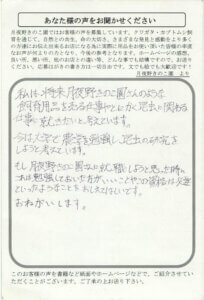 あなたの声をお聞かせください
月夜野きのこ園ではお客様の声を募集しています。クワガタ・カブトムシ飼
育を通じて、自然との共生、命の大切さ、さまざまな発見と感動をより多く
の方達にお伝え出来るお店になる為に実際に用品をお使い頂いた皆様の率直
なお声を頂けたらと考え、今後の参考となります。ホームページの感想、
良い所、悪い所、他のお店との違い等、どんな事でも結構ですので、お送り
ください。応募はがきの書き方は一切自由で、文でも絵でも大歓迎です！
月夜野きのこ園 より
私は将来月夜野きのこ園さんのような
飼育用品を売る仕事やとにかく昆虫に関わる
仕事に就きたいと考えています。
今は大学で農学を勉強し昆虫の研究を
しようと考えています。
そし月夜野きのこ園さんに就職しようと思った時の
為に勉強しておいた方がいいことやこの資格は必要
といったようなことをおしえてほしいです。
おねがいします。
このお客様の声を書籍など紙面やホームページなどで、ご紹介させていた
だくことがございます。ご了承の上お送り下さい。